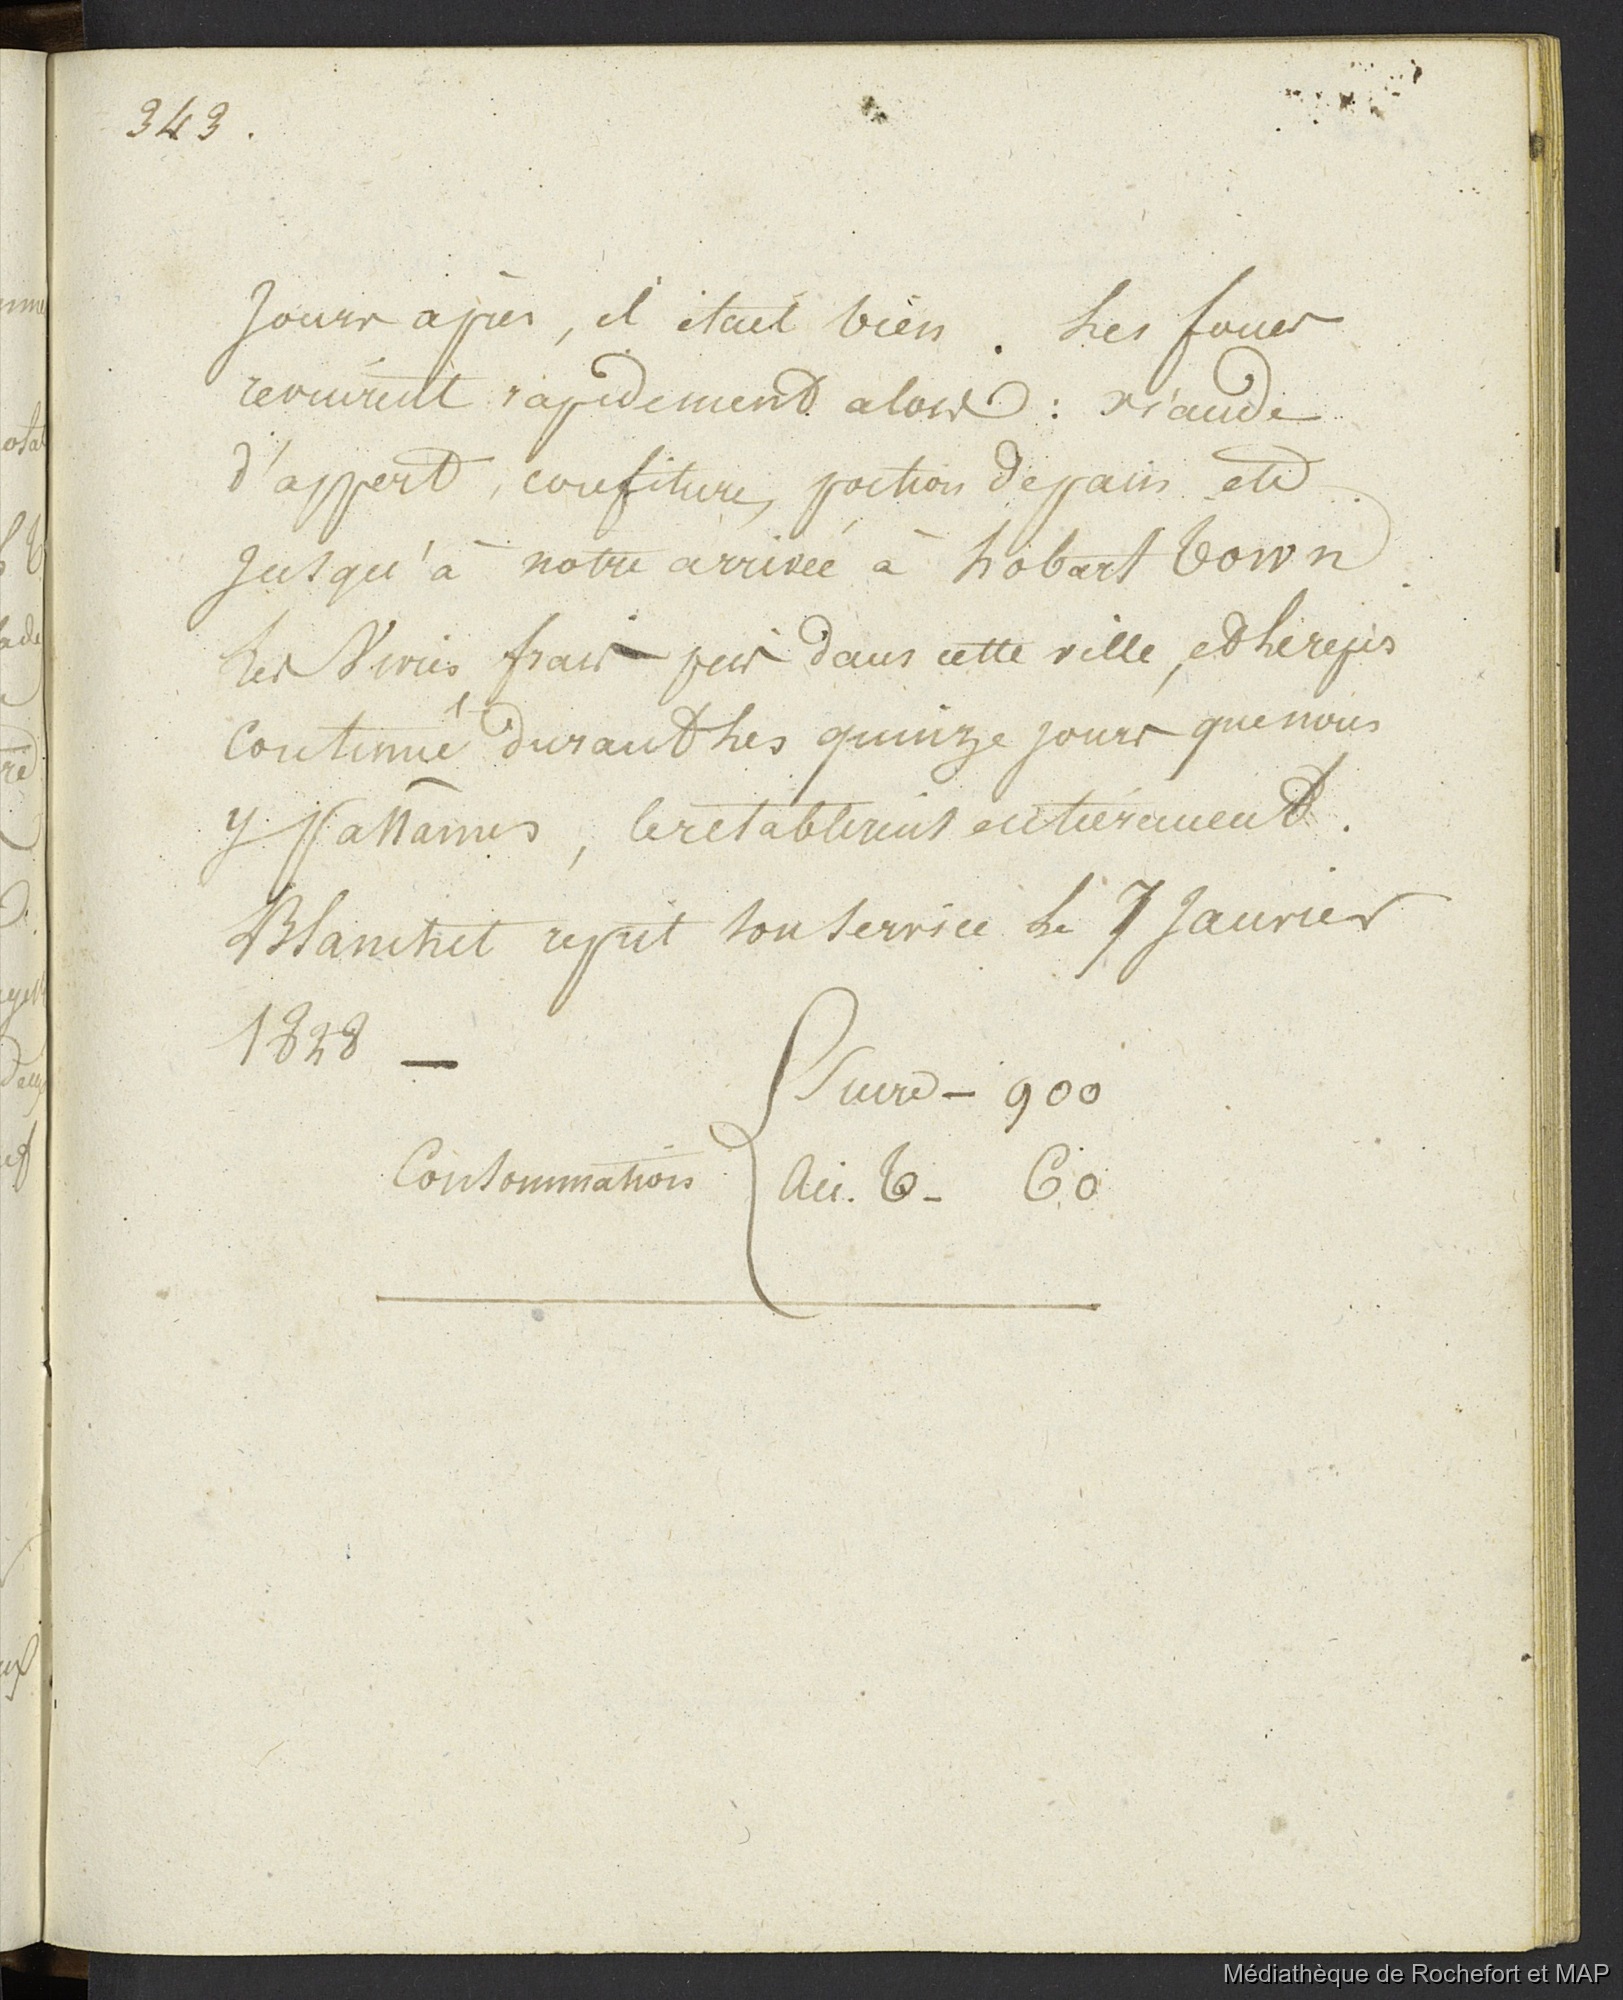 343.
Jours après, il était bien. Les forces
revinrent rapidement alors : viande
d'appert, confitures, portion de pain etc
Jusqu'à notre arrivée à hobart Town
Les Vivres frais pris dans cette ville, et le repos
continué durant les quinze jours que nous
y passâmes, le rétablirent entièrement.
Blanchet reprit son service le 7 Janvier
1828 —
Sucre — 900
Consommation
Aci. T — 60
Médiathèque de Rochefort et MAP